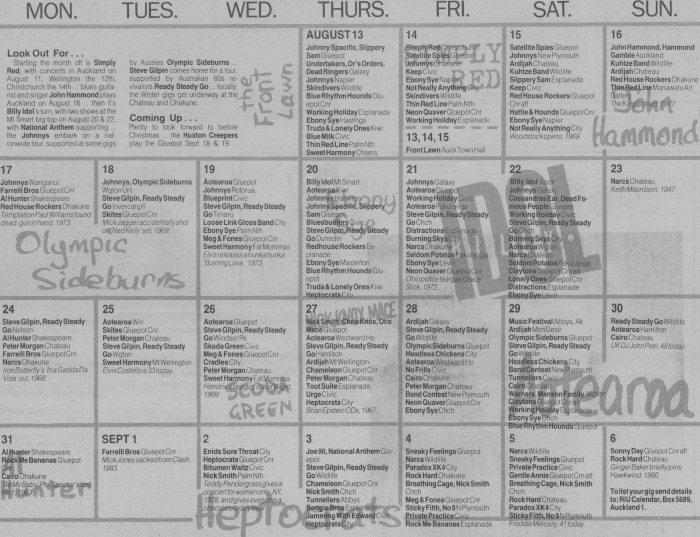 MON. TUES. WED. THURS. FRI. SAT. SUN.
Look Out For . . .
Starting the month off is Simply
Red, with concerts in Auckland on
August 11, Wellington the 12th,
Christchurch the 14th . . . blues guita-
rist and singer John Hammond plays
Auckland on August 16 . . . then it's
Billy Idol's turn, with two shows at the
Mt Smart big top on August 20 & 22,
with National Anthem supporting . . .
the Johnnys embark on a nat-
ionwide tour, supported at some gigs
by Aussies Olympic Sideburns . . .
Steve Gilpin comes home for a tour,
supported by Australian 60s re-
vivalists Ready Steady Go . . . locally,
the Winter gigs get underway at the
Chateau and Ohakune.
Coming Up . . .
Plenty to look forward to before
Christmas . . . the Huxton Creepers
play the Gluepot Sept 18 & 19 . . .
the Front Lawn
AUGUST 13
Johnny Specific, Slippery
Sam Gluepot
Undertakers, Dr's Orders,
Dead Ringers Galaxy
Johnnys Napier
Skindivers Wildlife
Blue Rhythm Hounds Glu-
epot Cnr
Working Holiday Esplanade
Ebony Sye Hastings
Truda & Lonely Ones Kiwi
Blue Milk Civic
Thin Red Line Palm Nth
Sweet Harmony Cheers
14
Simply Red
Satellite Spies Gluepot
Johnnys
Keep Civic
Ebony Sye Napier
Not Really Anything City
Skindivers Wildlife
Thin Red Line Palm Nth
Neon Quaver Gluepot Cnr
Working Holiday Esplanade
SIMPLY RED
13, 14, 15
Front Lawn Auck Town Hall
15
Satellite Spies Gluepot
Johnnys New Plymouth
Ardijah Chateau
Kuhtze Band Wildlife
Slippery Sam Esplanade
Keep Civic
Red House Rockers Gluepot
Cnr aft
Hattie & Hounds Gluepot Cnr
Ebony Sye Napier
Not Really Anything City
Woodstock opens, 1969
16
John Hammond, Hammond
Gamble Auckland
Kuhtze Band Wildlife
Ardijah Chateau
Red House Rockers Ohakune
Thin Red Line Manawatu Art
Gallery
John Hammond
17
Johnnys Wanganui
Farrelli Bros Gluepot Cnr
Al Hunter Shakespeare
Red House Rockers Ohakune
Temptation Paul Williams found
dead, gun in hand, 1973.
18
Johnnys, Olympic Sideburns
Wgton Uni
Steve Gilpin, Ready Steady
Go Invercargill
Skites Gluepot Cnr
Mick Jagger accidentally shot
on Ned Kelly set, 1969.
Olympic Sideburns
19
Aotearoa Gluepot
Johnnys Rotorua
Blueprint Civic
Steve Gilpin, Ready Steady
Go Timaru
Loose Link Gloss Band City
Ebony Sye Palm Nth
Meg & Fones Gluepot Cnr
Sweet Harmony Fat Mommas
Elvis releases a hunka hunka
'Burning Love,' 1973.
20
Billy Idol Mt Smart
Aotearoa Kiwi
Johnnys
Johnny Specific, Slippery
Sam Gluepot
Bluesbusters Civic
Steve Gilpin, Ready Steady
Go Dunedin
Redhouse Rockers Es-
planade
Ebony Sye Masterton
Blue Rhythm Hounds Glu-
epot
Truda & Lonely Ones Kiwi
Heptocrats City
Ebony Sye
21
Johnnys Galaxy
Aotearoa Gluepot
Working Holiday Civic
Ardijah Pakuranga
Steve Gilpin, Ready Steady
Go Chch
Distractions Esplanade
Burning Skys City
Narcs Ohakune
Seldom Potatos Pakuranga
Ebony Sye Levin
Neon Quaver Gluepot Cnr
Ohio police teargas Grace
Slick, 1972.
22
Billy Idol Auck
Johnnys Galaxy
Cassandras Ear, Dead Fa-
mous People Gluepot
Working Holiday Civic
Steve Gilpin, Ready Steady
Go
Burning Skys City
Aotearoa
Narcs Chateau
Seldom Potatos Pakuranga
Claytons Gluepot Cnr aft
Lonely Ones Gluepot Cnr
Distractions Esplanade
Ebony Sye Levin
IDOL
23
Narcs Chateau
Keith Moon born, 1947.
24
Steve Gilpin, Ready Steady
Go Nelson
Al Hunter Shakespeare
Peter Morgan Chateau
Farrelli Bros Gluepot Cnr
Narcs Ohakune
Iron Butterfly's 'In a Gadda Da
Vida' out, 1968.
25
Aotearoa Wiri
Skites Gluepot Cnr
Peter Morgan Chateau
Steve Gilpin, Ready Steady
Go Wgton
Sweet Harmony Mt Wellington
Elvis Costello is 33 today.
26
Steve Gilpin, Ready Steady
Go Windsor Pk
Skoda Green Civic
Meg & Fones Gluepot Cnr
Cradles City
Peter Morgan Chateau
Sweet Harmony Fat Mommas
1969
SCODA GREEN
27
Nick Smith, Chris Knox, Otis
Mace Gluepot
Aotearoa Westward Ho
Steve Gilpin, Ready Steady
Go Hamilton
Ardijah Mt Wellington
Chameleon Gluepot Cnr
Peter Morgan Chateau
Toot Suite Esplanade
Urge Civic
Heptocrats City
Brian Epstein ODs, 1967.
NICK KNOX MACE
28
Ardijah Galaxy
Steve Gilpin, Ready Steady
Go Wildlife
Olympic Sideburns Gluepot
Headless Chickens City
Aotearoa Westward Ho
No Frills Civic
Cairo Ohakune
Peter Morgan Chateau
Band Contest New Plymouth
Neon Quaver Gluepot Cnr
Ebony Sye Chch
29
Music Festival Abbys, Ak
Ardijah Mon Desir
Olympic Sideburns Gluepot
Steve Gilpin, Ready Steady
Go Wildlife
Headless Chickens City
Band Contest New Plymouth
Tunnellers Civic
Cairo Chateau
Warners, Manson Family Wgton
Claytons Gluepot
Working Holiday Esplanade
Ebony Sye Chch
Blue Rhythm Hounds Gluepot
Aotearoa
30
Ready Steady Go Wildlife
Aotearoa
Cairo Chateau
UK DJ John Peel, 48 today.
31
Al Hunter Shakespeare
Rock Me Bananas Gluepot
Cnr
Cairo Ohakune
Al Hunter!
SEPT 1
Farrelli Bros Gluepot Cnr
Mick Jones sacked from Clash,
1983.
2
Enids Sore Throat City
Heptocrats Gluepot
Bitumen Waltz Civic
Nick Smith Palm Nth
Teddy Pendergrass gives a
concert for women only, NY,
1978, and gives everyone a
chocolate teddy bear.
3
Joe 90, National Anthem Glu-
epot
Steve Gilpin, Ready Steady
Go Wildlife
Chameleon Gluepot Cnr
Nick Smith Chch
Tunnellers Abbys
Boogie Bros Esplanade
Jamming With Edward Civic
Heptocrats City
Heptocrats
4
Sneaky Feelings Gluepot
Narcs Wildlife
Paradox XK4 City
Rock Hard Ohakune
Breathing Cage, Nick Smith
Chch
Meg & Fones Gluepot Cnr
Sticky Filth, No 9 N Plymouth
Private Practice Civic
Rock Me Bananas Esplanade
5
Narcs Wildlife
Sneaky Feelings Gluepot
Private Practice Civic
Gentle Annie Gluepot Cnr aft
Breathing Cage, Nick Smith
Chch
Rock Hard Chateau
Paradox XK4 City
Sticky Filth, No 9 N Plymouth
Freddie Mercury, 41 today.
6
Sonny Day Gluepot Cnr aft
Rock Hard Chateau
Ginger Baker briefly joins
Hawkwind, 1980
To list your gig send details
to: RIU Calendar, Box 5689,
Auckland 1.